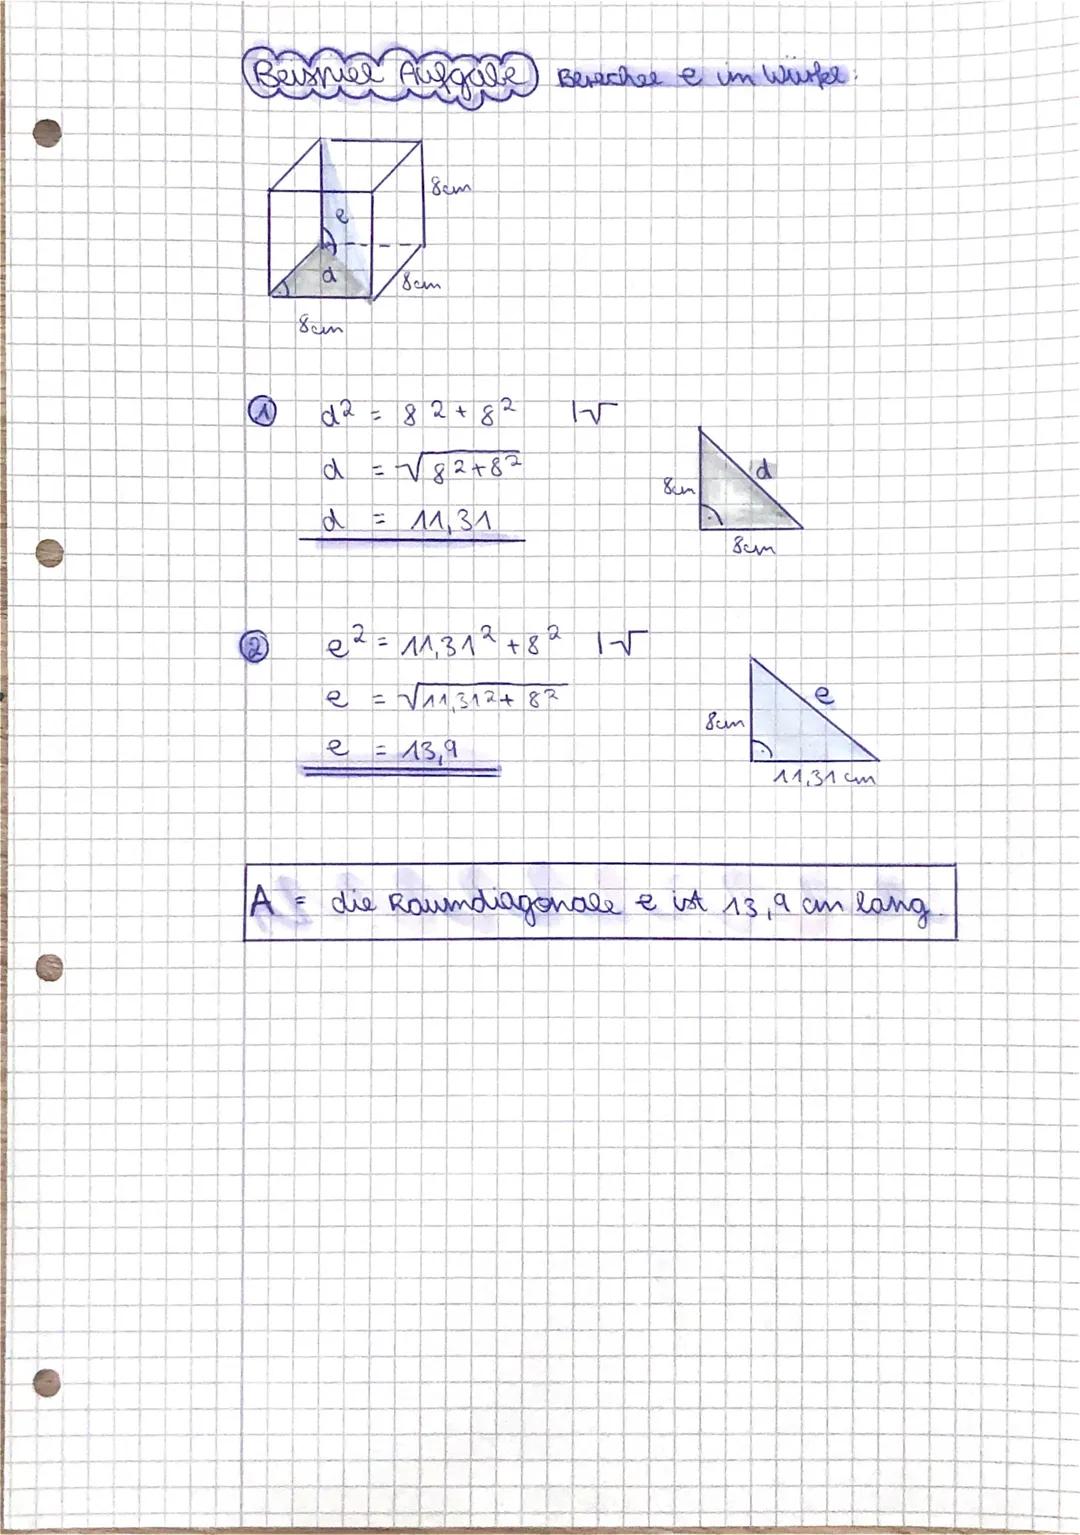 Beispiel Aufgabe Berechne e im Würfel:
8cm
e
d
8cm
8cm
① d² = 8² + 8² |√
d = √8²+8²
d = 11,31
8cm
d
8cm
② e² = 11,31² + 8² |√
e = √11,31² + 8²
e = 13,9
8cm
e
11,31 cm
A = die Raumdiagonale e ist 13,9 cm lang.